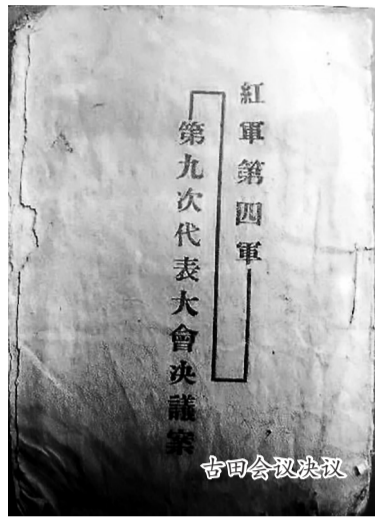 紅軍第四軍
第九次代表大會決議案
古田会议决议